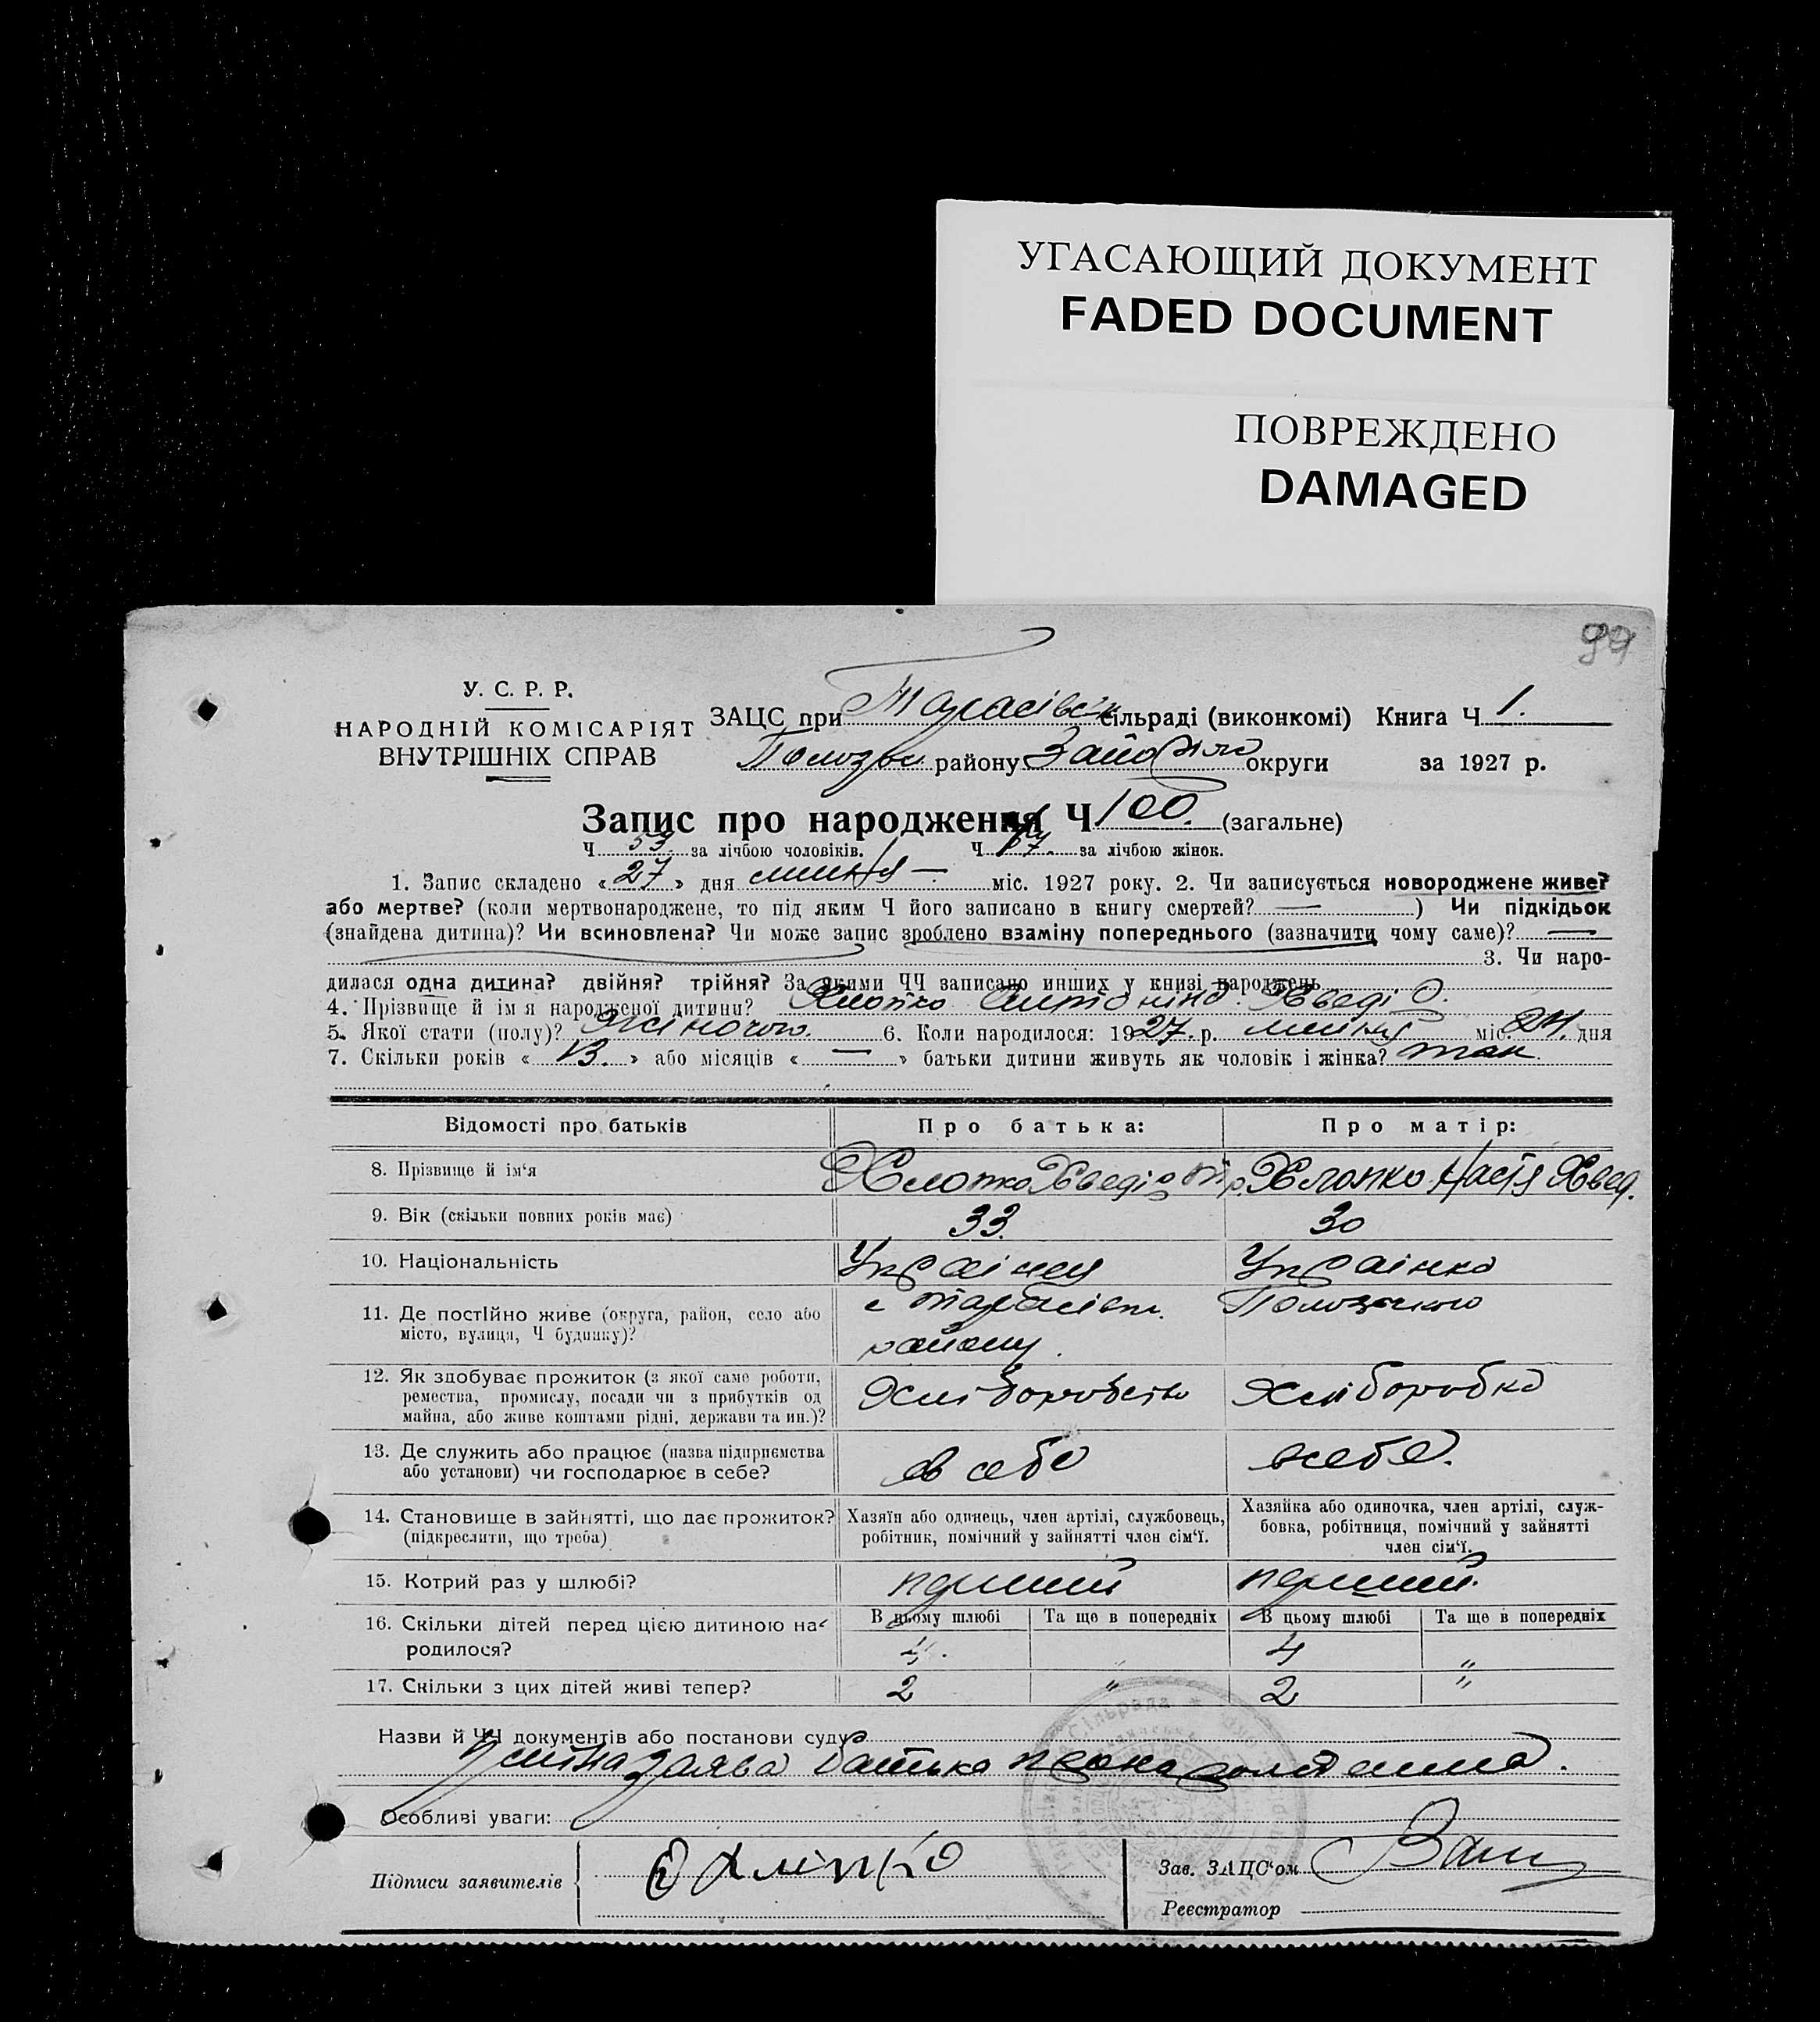 УГАСАЮЩИЙ ДОКУМЕНТ
FADED DOCUMENT
ПОВРЕЖДЕНО
DAMAGED
99
У. С. Р. Р.
НАРОДНІЙ КОМІСАРІЯТ
ВНУТРІШНІХ СПРАВ
ЗАЦС при Тарасівск сільраді (виконкомі) Книга Ч 1.
району округи за 1927 р.
Запис про народження Ч 100. (загальне)
Ч 53. за лічбою чоловіків. Ч 47. за лічбою жінок.
1. Запис складено «27» дня липня — міс. 1927 року. 2. Чи записується новороджене живе?
або мертве? (коли мертвонароджене, то під яким Ч його записано в книгу смертей? — ) Чи підкідьок
(знайдена дитина)? Чи всиновлена? Чи може запис зроблено взаміну попереднього (зазначити чому саме)? —
3. Чи наро-
дилася одна дитина? двійня? трійня? За якими ЧЧ записано инших у книзі народжень
4. Прізвище й ім я народженої дитини? Хлопко Антоніна Хведір.
5. Якої стати (полу)? Жіночого. 6. Коли народилося: 1927. р. липня міс. 24. дня
7. Скільки років «13.» або місяців « — » батьки дитини живуть як чоловік і жінка? так
Відомості про батьків Про батька: Про матір:
8. Прізвище й ім‘я Хлопко Хведір Хлопко Настя Хвед.
9. Вік (скільки повних років має) 33. 30
10. Національність Українец Українка
11. Де постійно живе (округа, район, село або с Тарасівка Пологського
місто, вулиця, Ч будинку)? району.
12. Як здобуває прожиток (з якої саме роботи, Хліборобство Хлібороба
ремества, промислу, посади чи з прибутків од
майна, або живе коштами рідні, держави та ин.)?
13. Де служить або працює (назва підприємства в себе всебе.
або установи) чи господарює в себе?
14. Становище в зайнятті, що дає прожиток? Хазяїн або одинець, член артілі, службовець, Хазяйка або одиночка, член артілі, служ-
(підкреслити, що треба) робітник, помічний у зайнятті член сім‘ї. бовка, робітниця, помічний у зайнятті
член сім‘ї.
15. Котрий раз у шлюбі? перший перший.
16. Скільки дітей перед цією дитиною на- В цьому шлюбі Та ще в попередніх В цьому шлюбі Та ще в попередніх
родилося? 4. „ 4 „
17. Скільки з цих дітей живі тепер? 2 „ 2 „
Назви й ЧЧ документів або постанови суду
Устна заява батька
Особливі уваги:
Підписи заявителів Хлопко Зав. ЗАЦС‘ом
Реєстратор